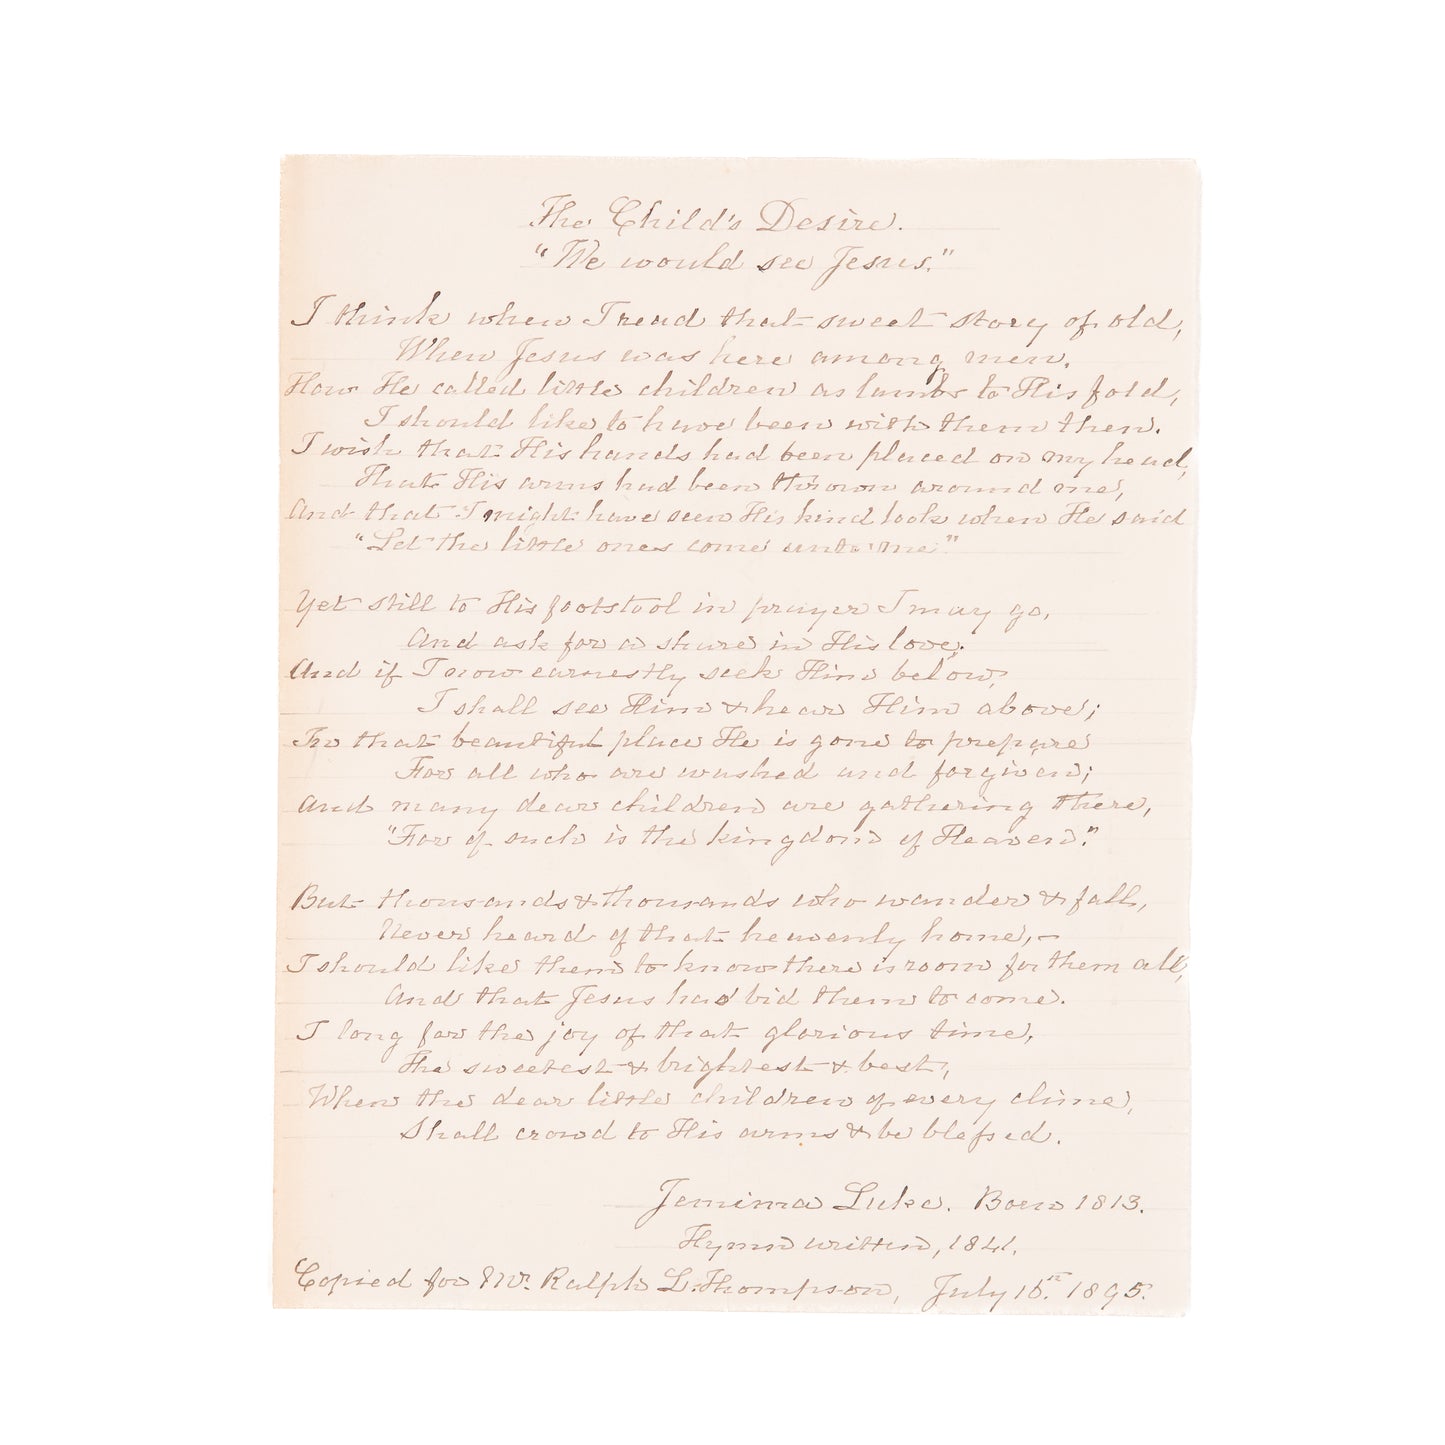 The Child's Desire.
"We would see Jesus."
I think when I read that sweet story of old,
When Jesus was here among men,
How He called little children as lambs to His fold,
I should like to have been with them then.
I wish that His hands had been placed on my head,
That His arms had been thrown around me,
And that I might have seen His kind look when He said
"Let the little ones come unto me."
Yet still to His footstool in prayer I may go,
And ask for a share in His love;
And if I now earnestly seek Him below,
I shall see Him & hear Him above;
In that beautiful place He is gone to prepare
For all who are washed and forgiven;
And many dear children are gathering there,
"For of such is the kingdom of Heaven."
But thousands & thousands who wander & fall,
Never heard of that heavenly home,—
I should like them to know there is room for them all,
And that Jesus had bid them to come.
I long for the joy of that glorious time,
The sweetest & brightest & best,
When the dear little children of every clime,
Shall crowd to His arms & be blessed.
Jemima Luke. Born 1813.
Hymn written, 1841.
Copied for Mr. Ralph L. Thompson, July 1895.